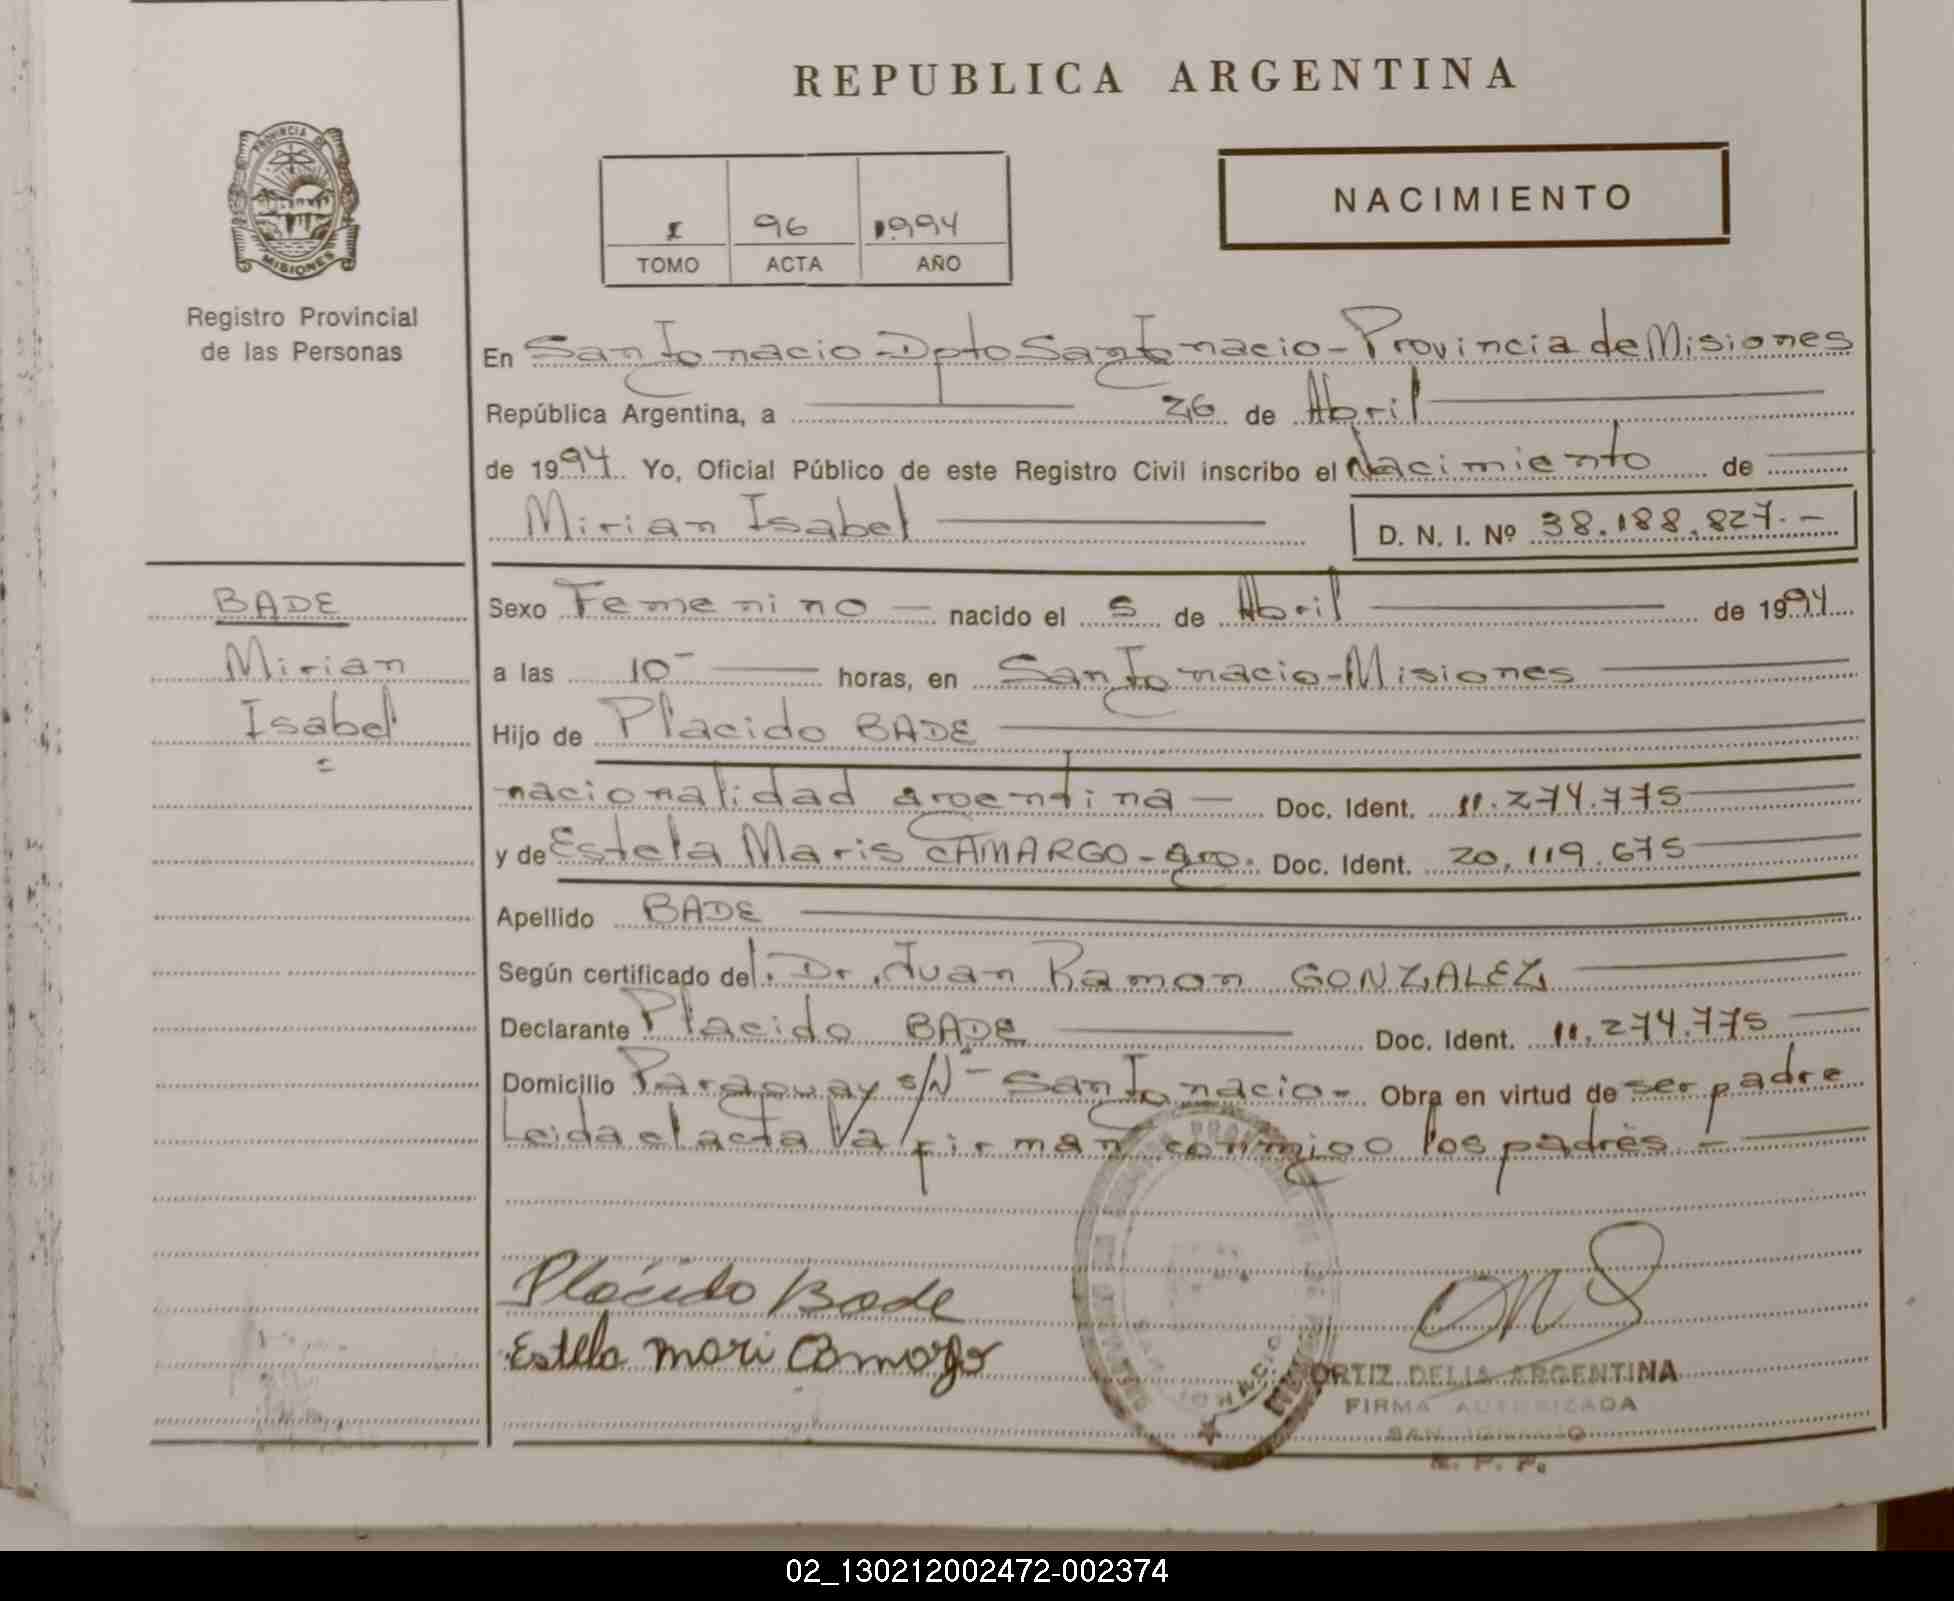 REPUBLICA ARGENTINA
PROVINCIA DE
MISIONES
Registro Provincial
de las Personas
I 96 1994
TOMO ACTA AÑO
NACIMIENTO
En San Ignacio Dpto San Ignacio - Provincia de Misiones
República Argentina, a 26 de Abril
de 1994 Yo, Oficial Público de este Registro Civil inscribo el Nacimiento de
Mirian Isabel D. N. I. Nº 38.188.827.-
BADE
Mirian
Isabel
Sexo Femenino nacido el 5 de Abril de 1994
a las 10 horas, en San Ignacio - Misiones
Hijo de Placido BADE
nacionalidad argentina Doc. Ident. 11.274.775
y de Estela Maris CAMARGO - arg. Doc. Ident. 20.119.675
Apellido BADE
Según certificado del. Dr. Juan Ramon GONZALEZ
Declarante Placido BADE Doc. Ident. 11.274.775
Domicilio Paraguay s/Nº - San Ignacio - Obra en virtud de ser padre
Leida el acta la firman conmigo los padres. -
Plácido Bade
Estela Mari Camargo
ORTIZ DELIA ARGENTINA
FIRMA AUTORIZADA
SAN IGNACIO
R. P. P.
02_130212002472-002374